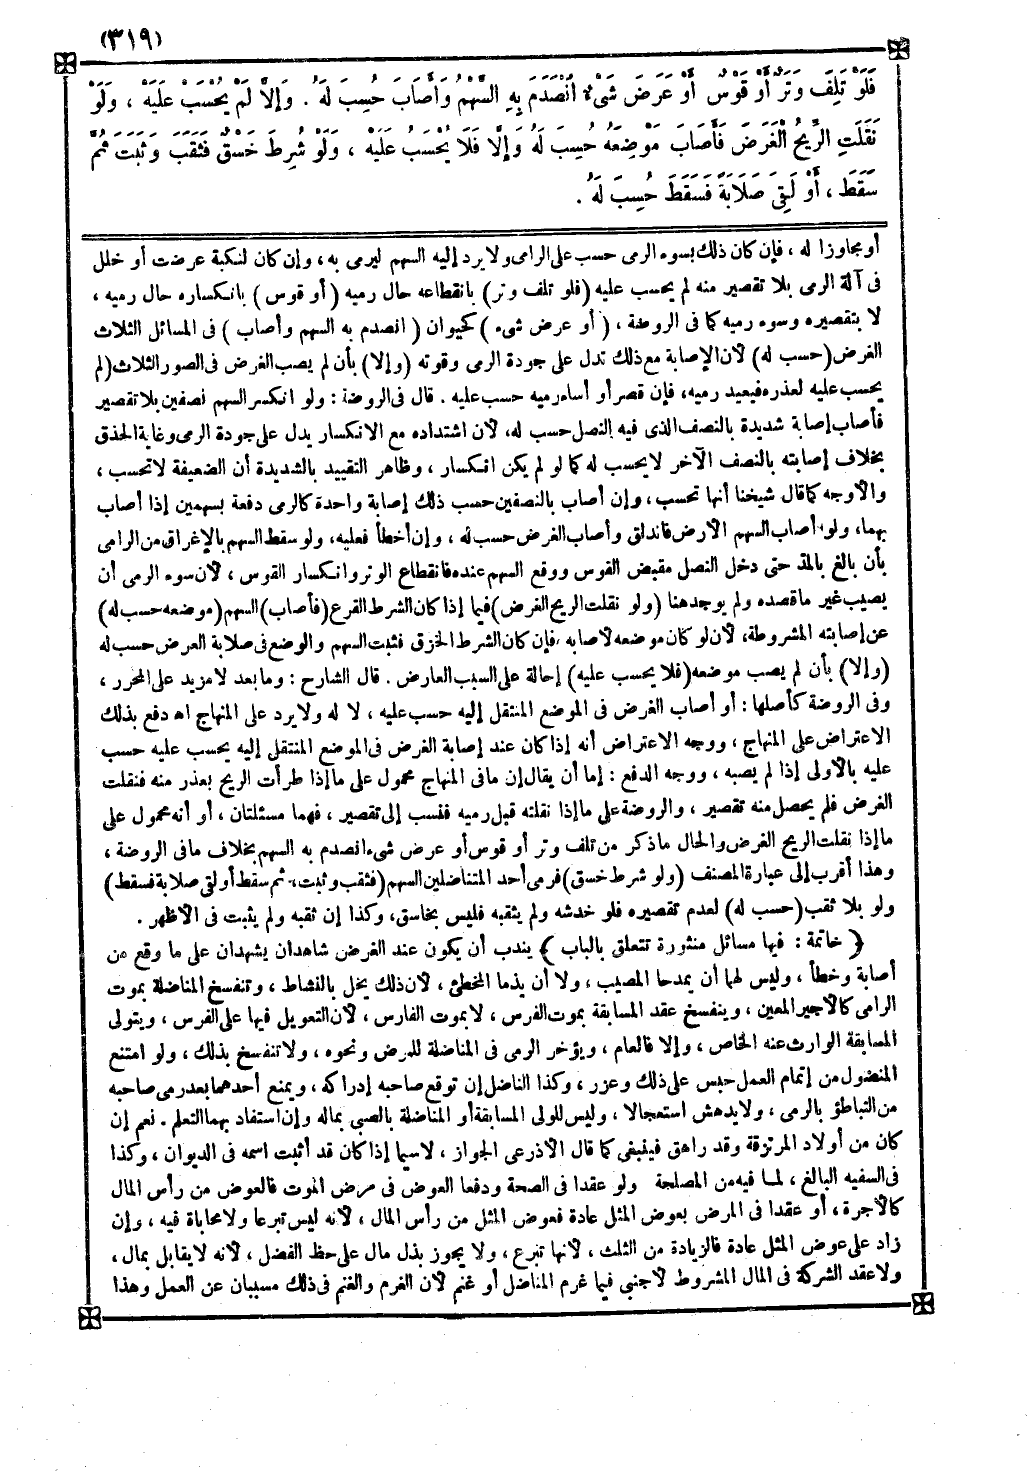 (٣١٩)
فَلَوْ تَلِفَ وَتَرٌ أَوْ قَوْسٌ أَوْ عَرَضَ شَىْءٌ انْصَدَمَ بِهِ السَّهْمُ وَأَصَابَ حُسِبَ لَهُ . وَإِلَّا لَمْ يُحْسَبْ عَلَيْهِ ، وَلَوْ
نَقَلَتِ الرِّيحُ الْغَرَضَ فَأَصَابَ مَوْضِعَهُ حُسِبَ لَهُ وَإِلَّا فَلَا يُحْسَبُ عَلَيْهِ ، وَلَوْ شُرِطَ خَسْقٌ فَثَقَبَ وَثَبَتَ ثُمَّ
سَقَطَ ، أَوْ لَقِىَ صَلَابَةً فَسَقَطَ حُسِبَ لَهُ .
أو مجاوزا له ، فإن كان ذلك بسوء الرمى حسب على الرامى ولا يرد إليه السهم ليرمى به ، وإن كان لنكبة عرضت أو خلل
فى آلة الرمى بلا تقصير منه لم يحسب عليه (فلو تلف وتر) بانقطاعه حال رميه (أو قوس) بانكساره حال رميه ،
لا بتقصيره وسوء رميه كما فى الروضة ، (أو عرض شىء) كحيوان (انصدم به السهم وأصاب) فى المسائل الثلاث
الغرض (حسب له) لأن الإصابة مع ذلك تدل على جودة الرمى وقوته (وإلا) بأن لم يصب الغرض فى الصور الثلاث (لم
يحسب عليه لعذره فيعيد رميه، فإن قصر أو أساء رميه حسب عليه . قال فى الروضة : ولو انكسر السهم نصفين بلا تقصير
فأصاب إصابة شديدة بالنصف الذى فيه النصل حسب له، لأن اشتداده مع الانكسار يدل على جودة الرمى وغاية الحذق
بخلاف إصابته بالنصف الآخر لا يحسب له كما لو لم يكن انكسار ، وظاهر التقييد بالشديدة أن الضعيفة لا تحسب ،
والأوجه كما قال شيخنا أنها تحسب، وإن أصاب بالنصفين حسب ذلك إصابة واحدة كالرمى دفعة بسهمين إذا أصاب
بهما، ولو أصاب السهم الأرض فاندلق وأصاب الغرض حسب له ، وإن أخطأ فعليه، ولو سقط السهم بالإغراق من الرامى
بأن بالغ بالمد حتى دخل النصل مقبض القوس ووقع السهم عنده فانقطاع الوتر وانكسار القوس ، لأن سوء الرمى أن
يصيب غير ما قصده ولم يوجد هنا (ولو نقلت الريح الغرض) فيما إذا كان الشرط القرع (فأصاب) السهم (موضعه حسب له)
عن إصابته المشروطة، لأن لو كان موضعه لأصابه ، فإن كان الشرط الخزق فثبت السهم والوضع فى صلابة الغرض حسب له
(وإلا) بأن لم يصب موضعه (فلا يحسب عليه) إحالة على السبب العارض . قال الشارح : وما بعد لا مزيد على المحرر ،
وفى الروضة كأصلها : أو أصاب الغرض فى الموضع المنتقل إليه حسب عليه ، لا له ولا يرد على المنهاج اه دفع بذلك
الاعتراض على المنهاج ، ووجه الاعتراض أنه إذا كان عند إصابة الغرض فى الموضع المنتقل إليه يحسب عليه حسب
عليه بالأولى إذا لم يصبه ، ووجه الدفع : إما أن يقال إن ما فى المنهاج محمول على ما إذا طرأت الريح بعذر منه فنقلت
الغرض فلم يحصل منه تقصير ، والروضة على ما إذا نقلته قبل رميه فنسب إلى تقصير ، فهما مسئلتان ، أو أنه محمول على
ما إذا نقلت الريح الغرض والحال ما ذكر من تلف وتر أو قوس أو عرض شىء انصدم به السهم بخلاف ما فى الروضة ،
وهذا أقرب إلى عبارة المصنف (ولو شرط خسق) فرمى أحد المتناضلين السهم (فثقب وثبت، ثم سقط أو لقى صلابة فسقط)
ولو بلا ثقب (حسب له) لعدم تقصيره فلو خدشه ولم يثقبه فليس بخاسق، وكذا إن ثقبه ولم يثبت فى الأظهر .
﴿ خاتمة : فيها مسائل منثورة تتعلق بالباب ﴾ يندب أن يكون عند الغرض شاهدان يشهدان على ما وقع من
أصابة وخطأ ، وليس لهما أن يمدحا المصيب ، ولا أن يذما المخطئ ، لأن ذلك يخل بالنشاط ، وتنفسخ المناضلة بموت
الرامى كالأجير المعين ، وينفسخ عقد المسابقة بموت الفرس ، لا بموت الفارس ، لأن التعويل فيها على الفرس ، ويتولى
المسابقة الوارث عنه الخاص ، وإلا فالعام ، ويؤخر الرمى فى المناضلة للمرض ونحوه ، ولا تنفسخ بذلك ، ولو امتنع
المنضول من إتمام العمل حبس على ذلك وعزر ، وكذا الناضل إن توقع صاحبه إدراكه ، ويمنع أحدهما بعد رمى صاحبه
من التباطؤ بالرمى ، ولا يدهش استعجالا ، وليس للولى المسابقة أو المناضلة بالصبى بماله وإن استفاد بهما التعلم . نعم إن
كان من أولاد المرتزقة وقد راهق فينبغى كما قال الأذرعى الجواز ، لاسيما إذا كان قد أثبت اسمه فى الديوان ، وكذا
فى السفيه البالغ ، لما فيه من المصلحة ولو عقدا فى الصحة ودفعا العوض فى مرض الموت فالعوض من رأس المال
كالأجرة ، أو عقدا فى المرض بعوض المثل عادة فعوض المثل من رأس المال ، لأنه ليس تبرعا ولا محاباة فيه ، وإن
زاد على عوض المثل عادة فالزيادة من الثلث ، لأنها تبرع ، ولا يجوز بذل مال على حظ الفضل ، لأنه لا يقابل بمال ،
ولا عقد الشركة فى المال المشروط لأجنبى فيما غرم المناضل أو غنم لأن الغرم والغنم فى ذلك مسببان عن العمل وهذا